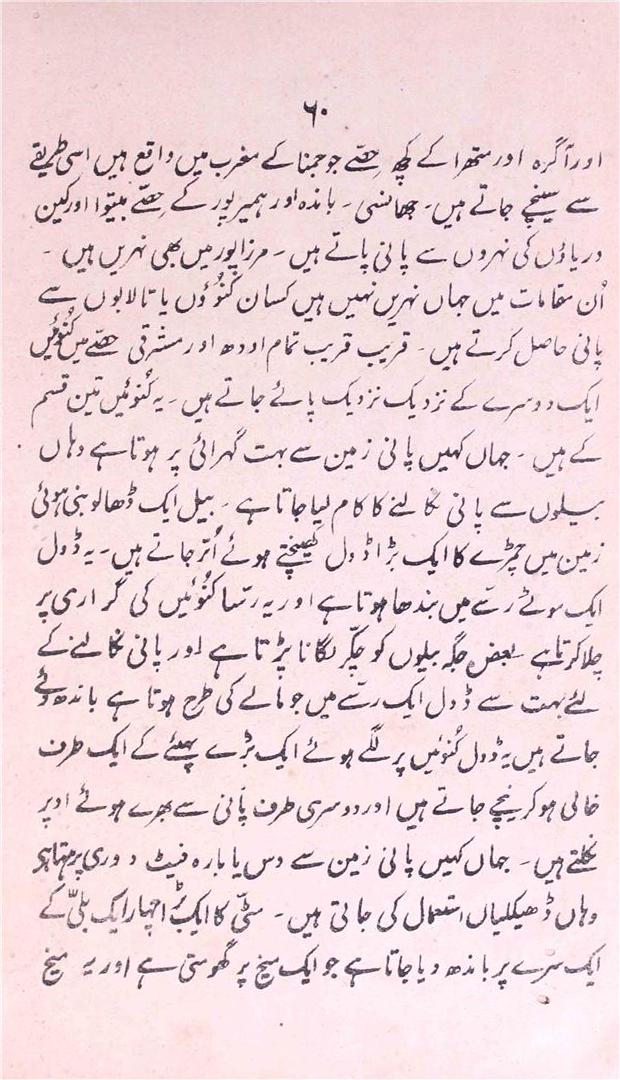 ۶۰
اور آگرہ اور متھرا کے کچھ حصّے جو جمنا کے مغرب میں واقع ہیں اسی طریقے
سے سینچے جاتے ہیں۔ جھانسی۔ باندہ اور ہمیرپور کے حصّے بیتوا اور کین
دریاؤں کی نہروں سے پانی پاتے ہیں۔ مرزاپور میں بھی نہریں ہیں۔
اُن مقامات میں جہاں نہریں نہیں ہیں کسان کنُوؤں یا تالابوں سے
پانی حاصل کرتے ہیں۔ قریب قریب تمام اودھ اور مشرقی حصّے میں کُنوئیں
ایک دوسرے کے نزدیک نزدیک پائے جاتے ہیں۔ یہ کُنوئیں تین قسم
کے ہیں۔ جہاں کہیں پانی زمین سے بہت گہرائی پر ہوتا ہے وہاں
بیلوں سے پانی نکالنے کا کام لیا جاتا ہے۔ بیل ایک ڈھالو بنی ہوئی
زمین میں چمڑے کا ایک بڑا ڈول کھینچتے ہوئے اُتر جاتے ہیں۔ یہ ڈول
ایک موٹے رسّے میں بندھا ہوتا ہے اور یہ رسّا کنُوئیں کی گراری پر
چلا کرتا ہے بعض جگہ بیلوں کو چکّر لگانا پڑتا ہے اور پانی نکالنے کے
لئے بہت سے ڈول ایک رسّے میں جو مالے کی طرح ہوتا ہے باندھ دئے
جاتے ہیں یہ ڈول کُنوئیں پر لگے ہوئے ایک بڑے پہیئے کے ایک طرف
خالی ہو کر نیچے جاتے ہیں اور دوسری طرف پانی سے بھرے ہوئے اوپر
نکلتے ہیں۔ جہاں کہیں پانی زمین سے دس یا بارہ فیٹ دوری پر رہتا ہی
وہاں ڈھیکلیاں استعمال کی جاتی ہیں۔ مٹّی کا ایک بڑا چہار ایک بلّی کے
ایک سرے پر باندھ دیا جاتا ہے جو ایک میخ پر گھومتی ہے اور یہ میخ